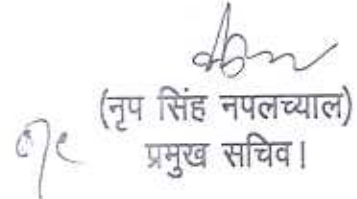 (नृप सिंह नपलच्याल)
प्रमुख सचिव।